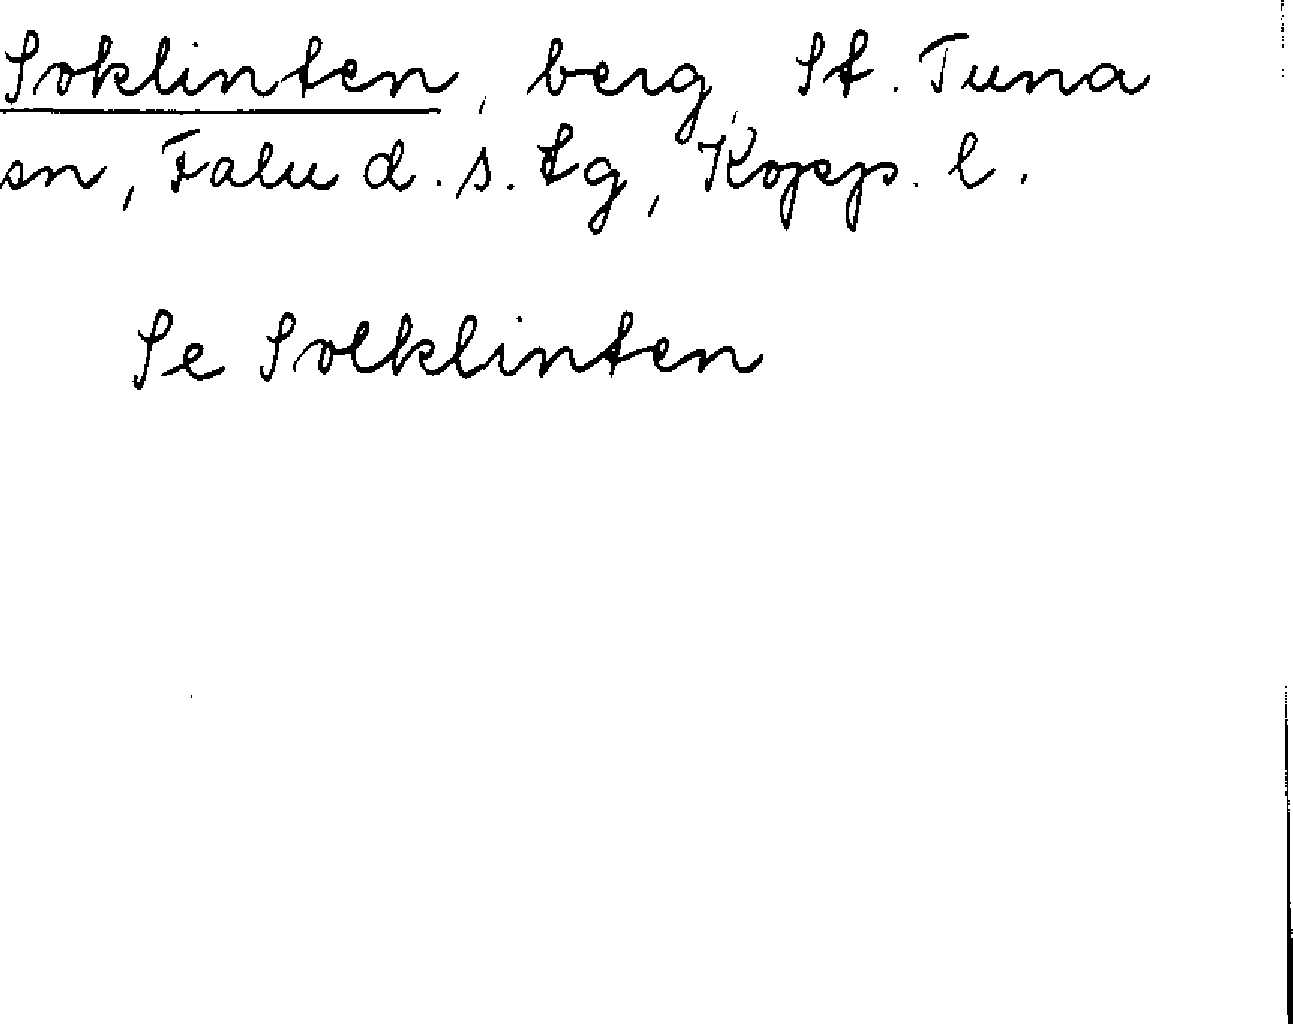 Soklinten, berg, St. Tuna
sn, Falu d. s. tg, Kopp. l.
Se Solklinten